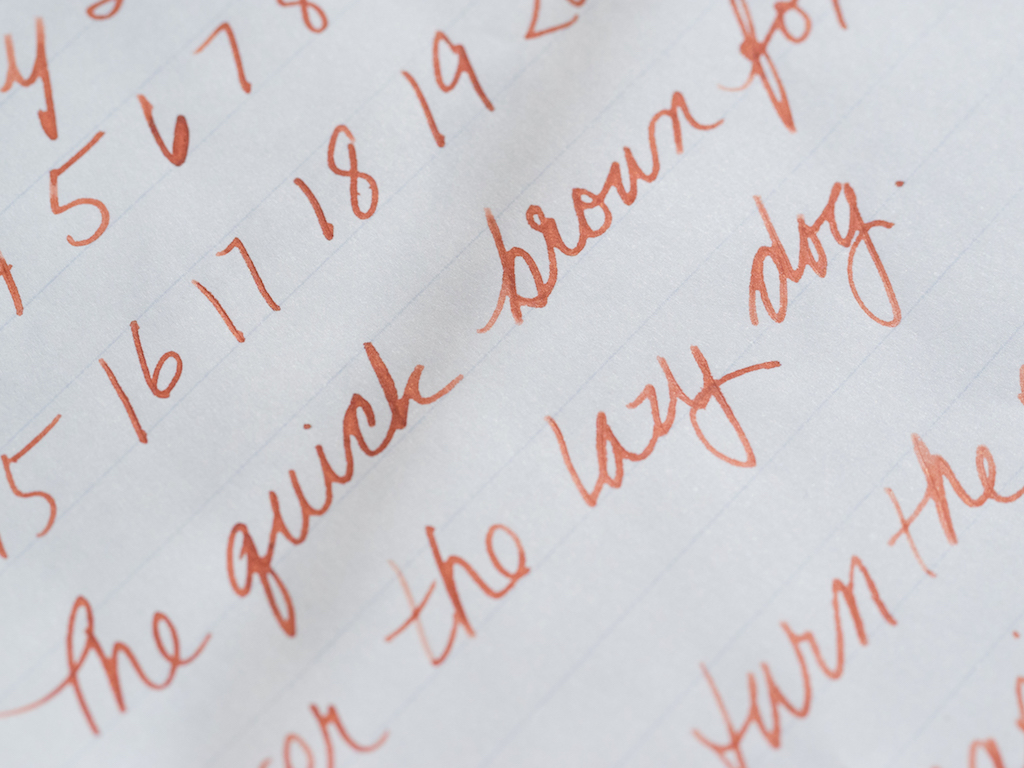 y
5 6 7 8
15 16 17 18 19
the quick brown fo
er the lazy dog.
turn the